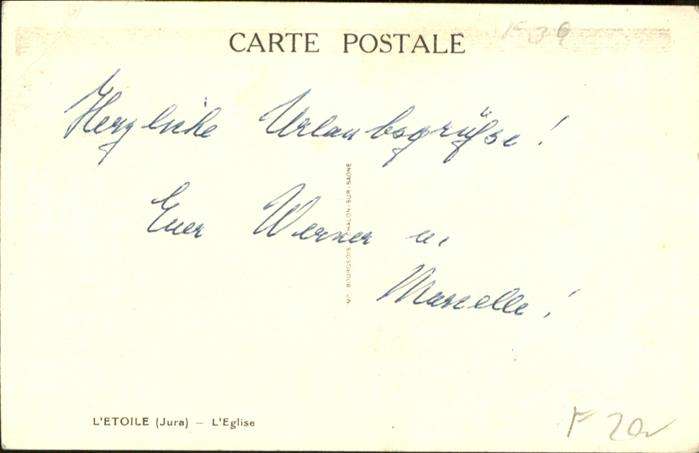 F 39
CARTE POSTALE
Herzliche Urlaubsgrüsse!
Euer Werner u.
Marcelle!
IMP. BOURGEOIS, CHALON-SUR-SAÔNE
L'ETOILE (Jura) – L'Eglise
F 20